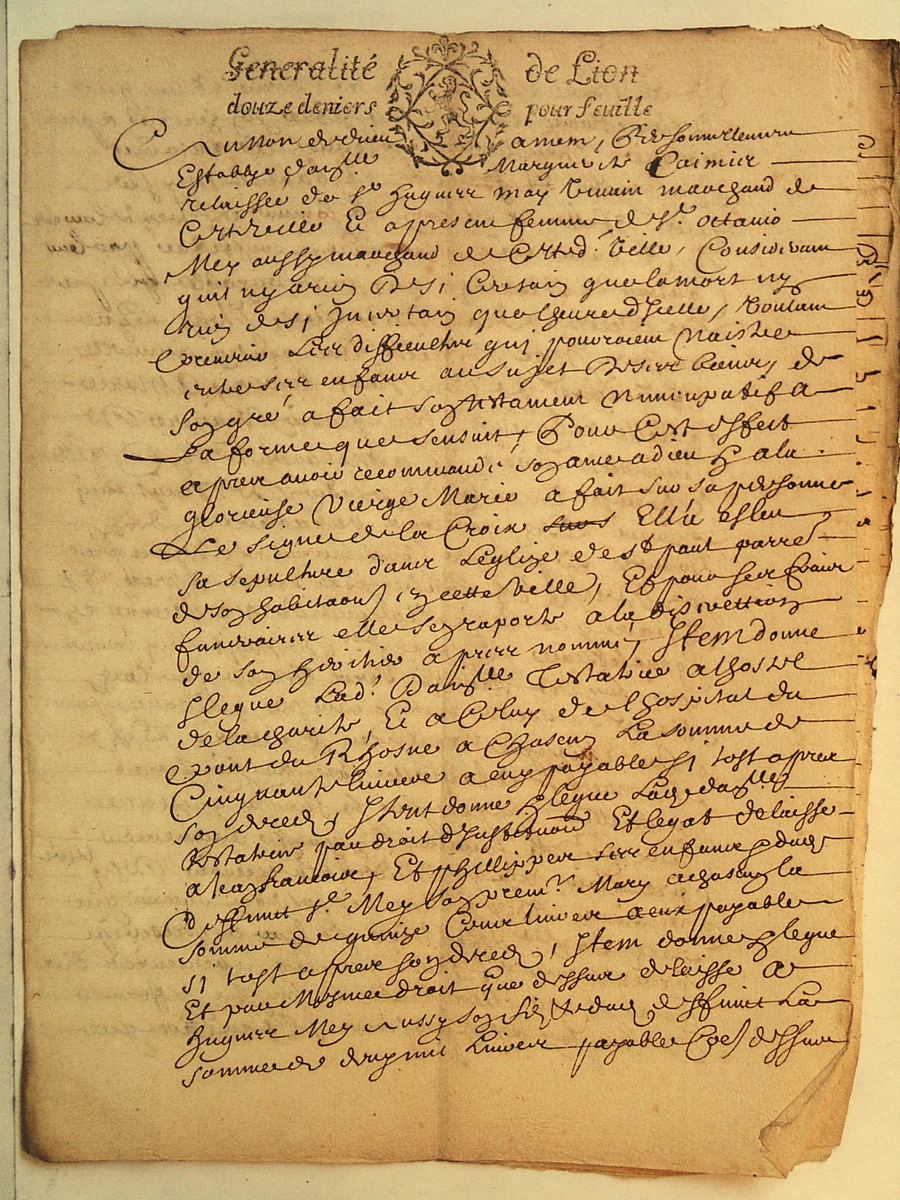 Generalité de Lion
douze deniers pour feuille
Au Non de dieu amen, Personnellement
Establye damlle Marguerite Caimier
relaissée de Sr Hugues May vivant marchand de
Cette ville Et a present femme de Sr octavio
Mey aussy marchand de Cetted. ville, Considerant
quil ny a rien de si Certain que la mort ny
rien de si Incertain que lheure d'Icelle, voulant
prevenir les difficultes qui pourroient Naistre
entre ses enfans au sujet de ses biens, de
son gré a fait son testament Nuncupatif a
La forme que sensuit, Pour Cest effect
apres avoir recommandé son ame a dieu & a la
glorieuse Vierge Marie a fait sur sa personne
Le signe de la Croix Elle a esleu
sa sepulture dans L'eglize de st paul parre
de son habitaon en cette ville, Et pour ses frais
funeraires elle sen raporte a la discrettion
de son heritier apres nommé, Item donne
& legue Lad. Damlle Testatrice a lhostel
de la charité, Et a Celuy de l'hospital du
pont du Rhosne a Chascun La somme de
Cinquante livres a eux payable si tost apres
son deces, Item donne & legue Lade damlle
testatrice par droit d'Institution Et legat delaisse
a francoise, Et phillippes ses enfans & dud
deffunt Sr Mey son premr Mary a chascun la
somme de quinze Cent livres a eux payable
si tost apres son deces, Item donne & legue
Et par Mesme droit que dessus delaisse a
Hugues Mey aussy son fils & dud deffunt La
somme de livres payable Coe dessus